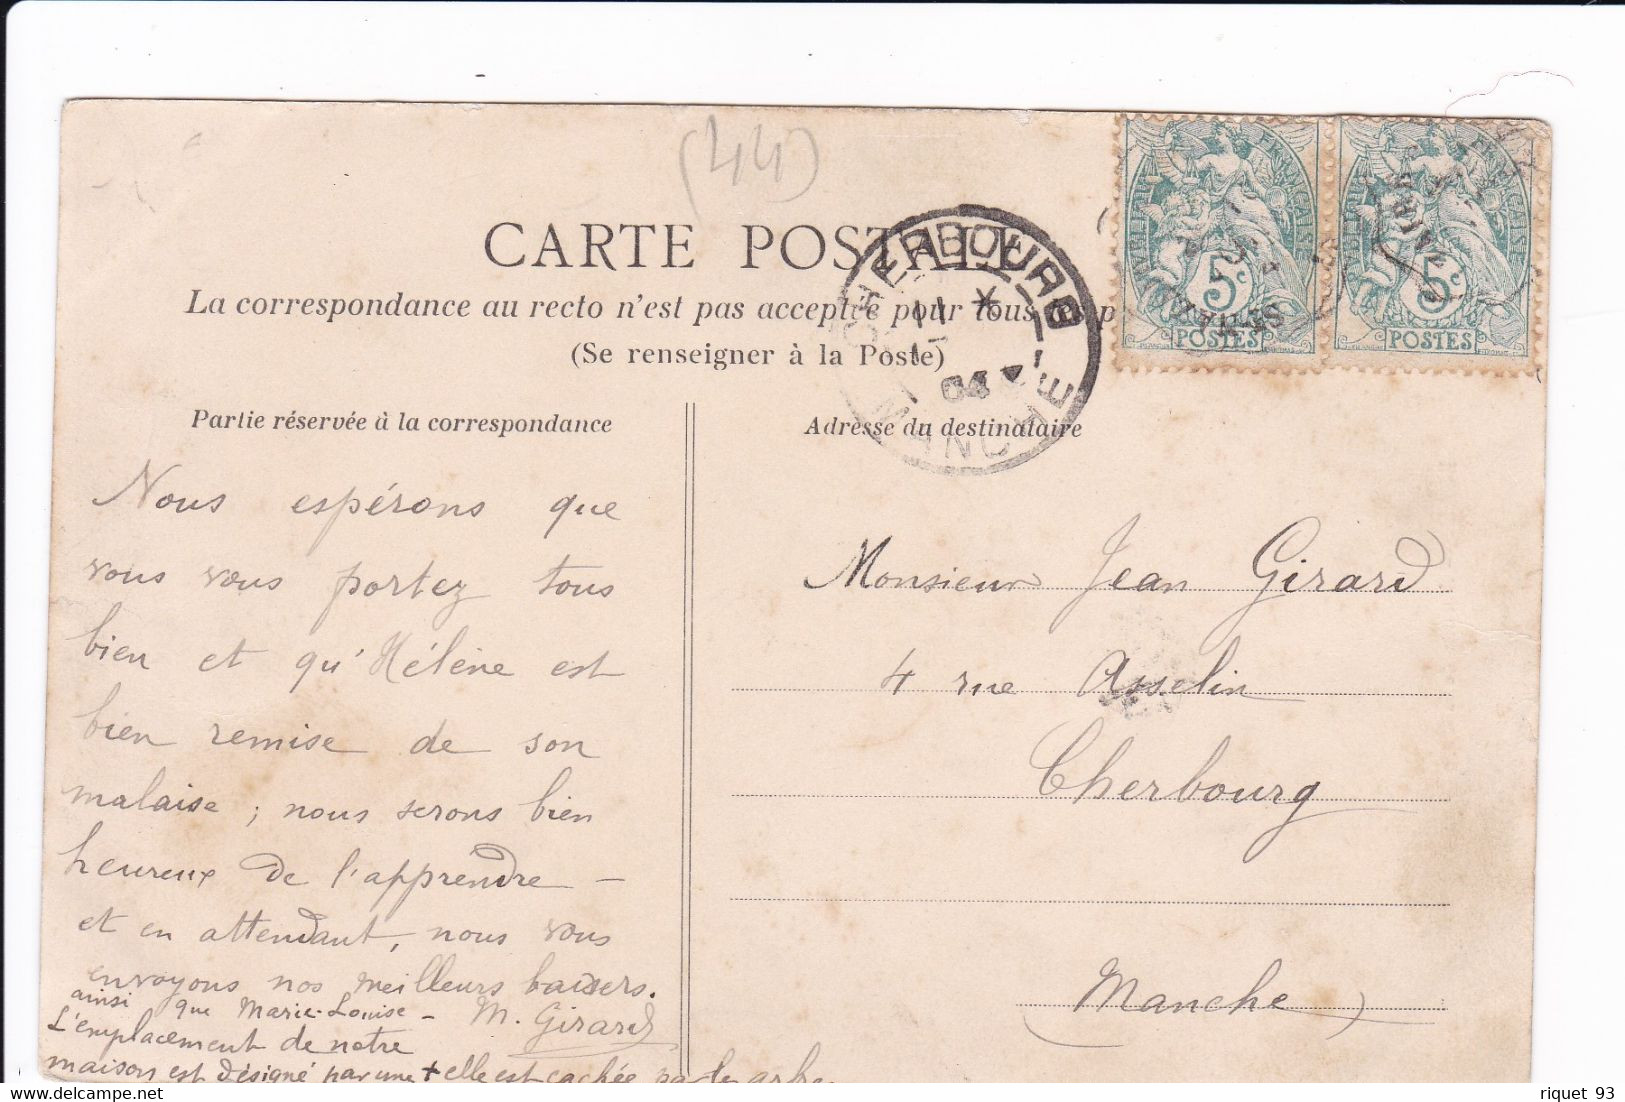 (44)
CARTE POSTALE
La correspondance au recto n'est pas acceptée pour tous
(Se renseigner à la Poste)
CHERBOURG
MANCHE
04
5c
POSTES
5c
POSTES
Partie réservée à la correspondance
Nous espérons que
vous vous portez tous
bien et qu'Hélène est
bien remise de son
malaise ; nous serons bien
heureux de l'apprendre –
et en attendant, nous vous
envoyons nos meilleurs baisers.
ainsi que Marie-Louise – M. Girard
L'emplacement de notre
maison est désigné par une + elle est cachée
Adresse du destinataire
Monsieur Jean Girard
4 rue Asselin
Cherbourg
(Manche)
riquet 93